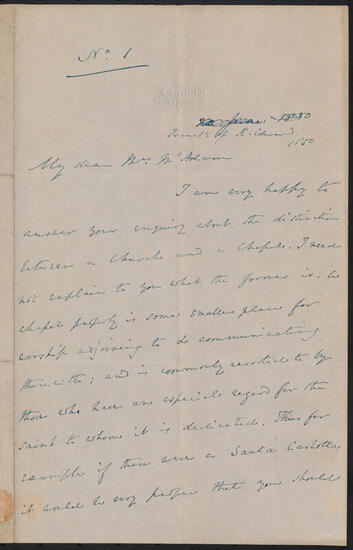 No. 1
Transl. of K. Edward
1850
My dear Mrs McAdam
I am very happy to
answer your enquiry abt the distinction
between a Church and a Chapel. I need
not explain to you what the former is. A
chapel properly is some smaller place for
worship adjoining to & communicating
therewith; and is commonly resorted to by
those who have an especial regard for the
saint to whom it is dedicated. Thus for
example if there were a Santa Carlotta
it would be very proper that you should